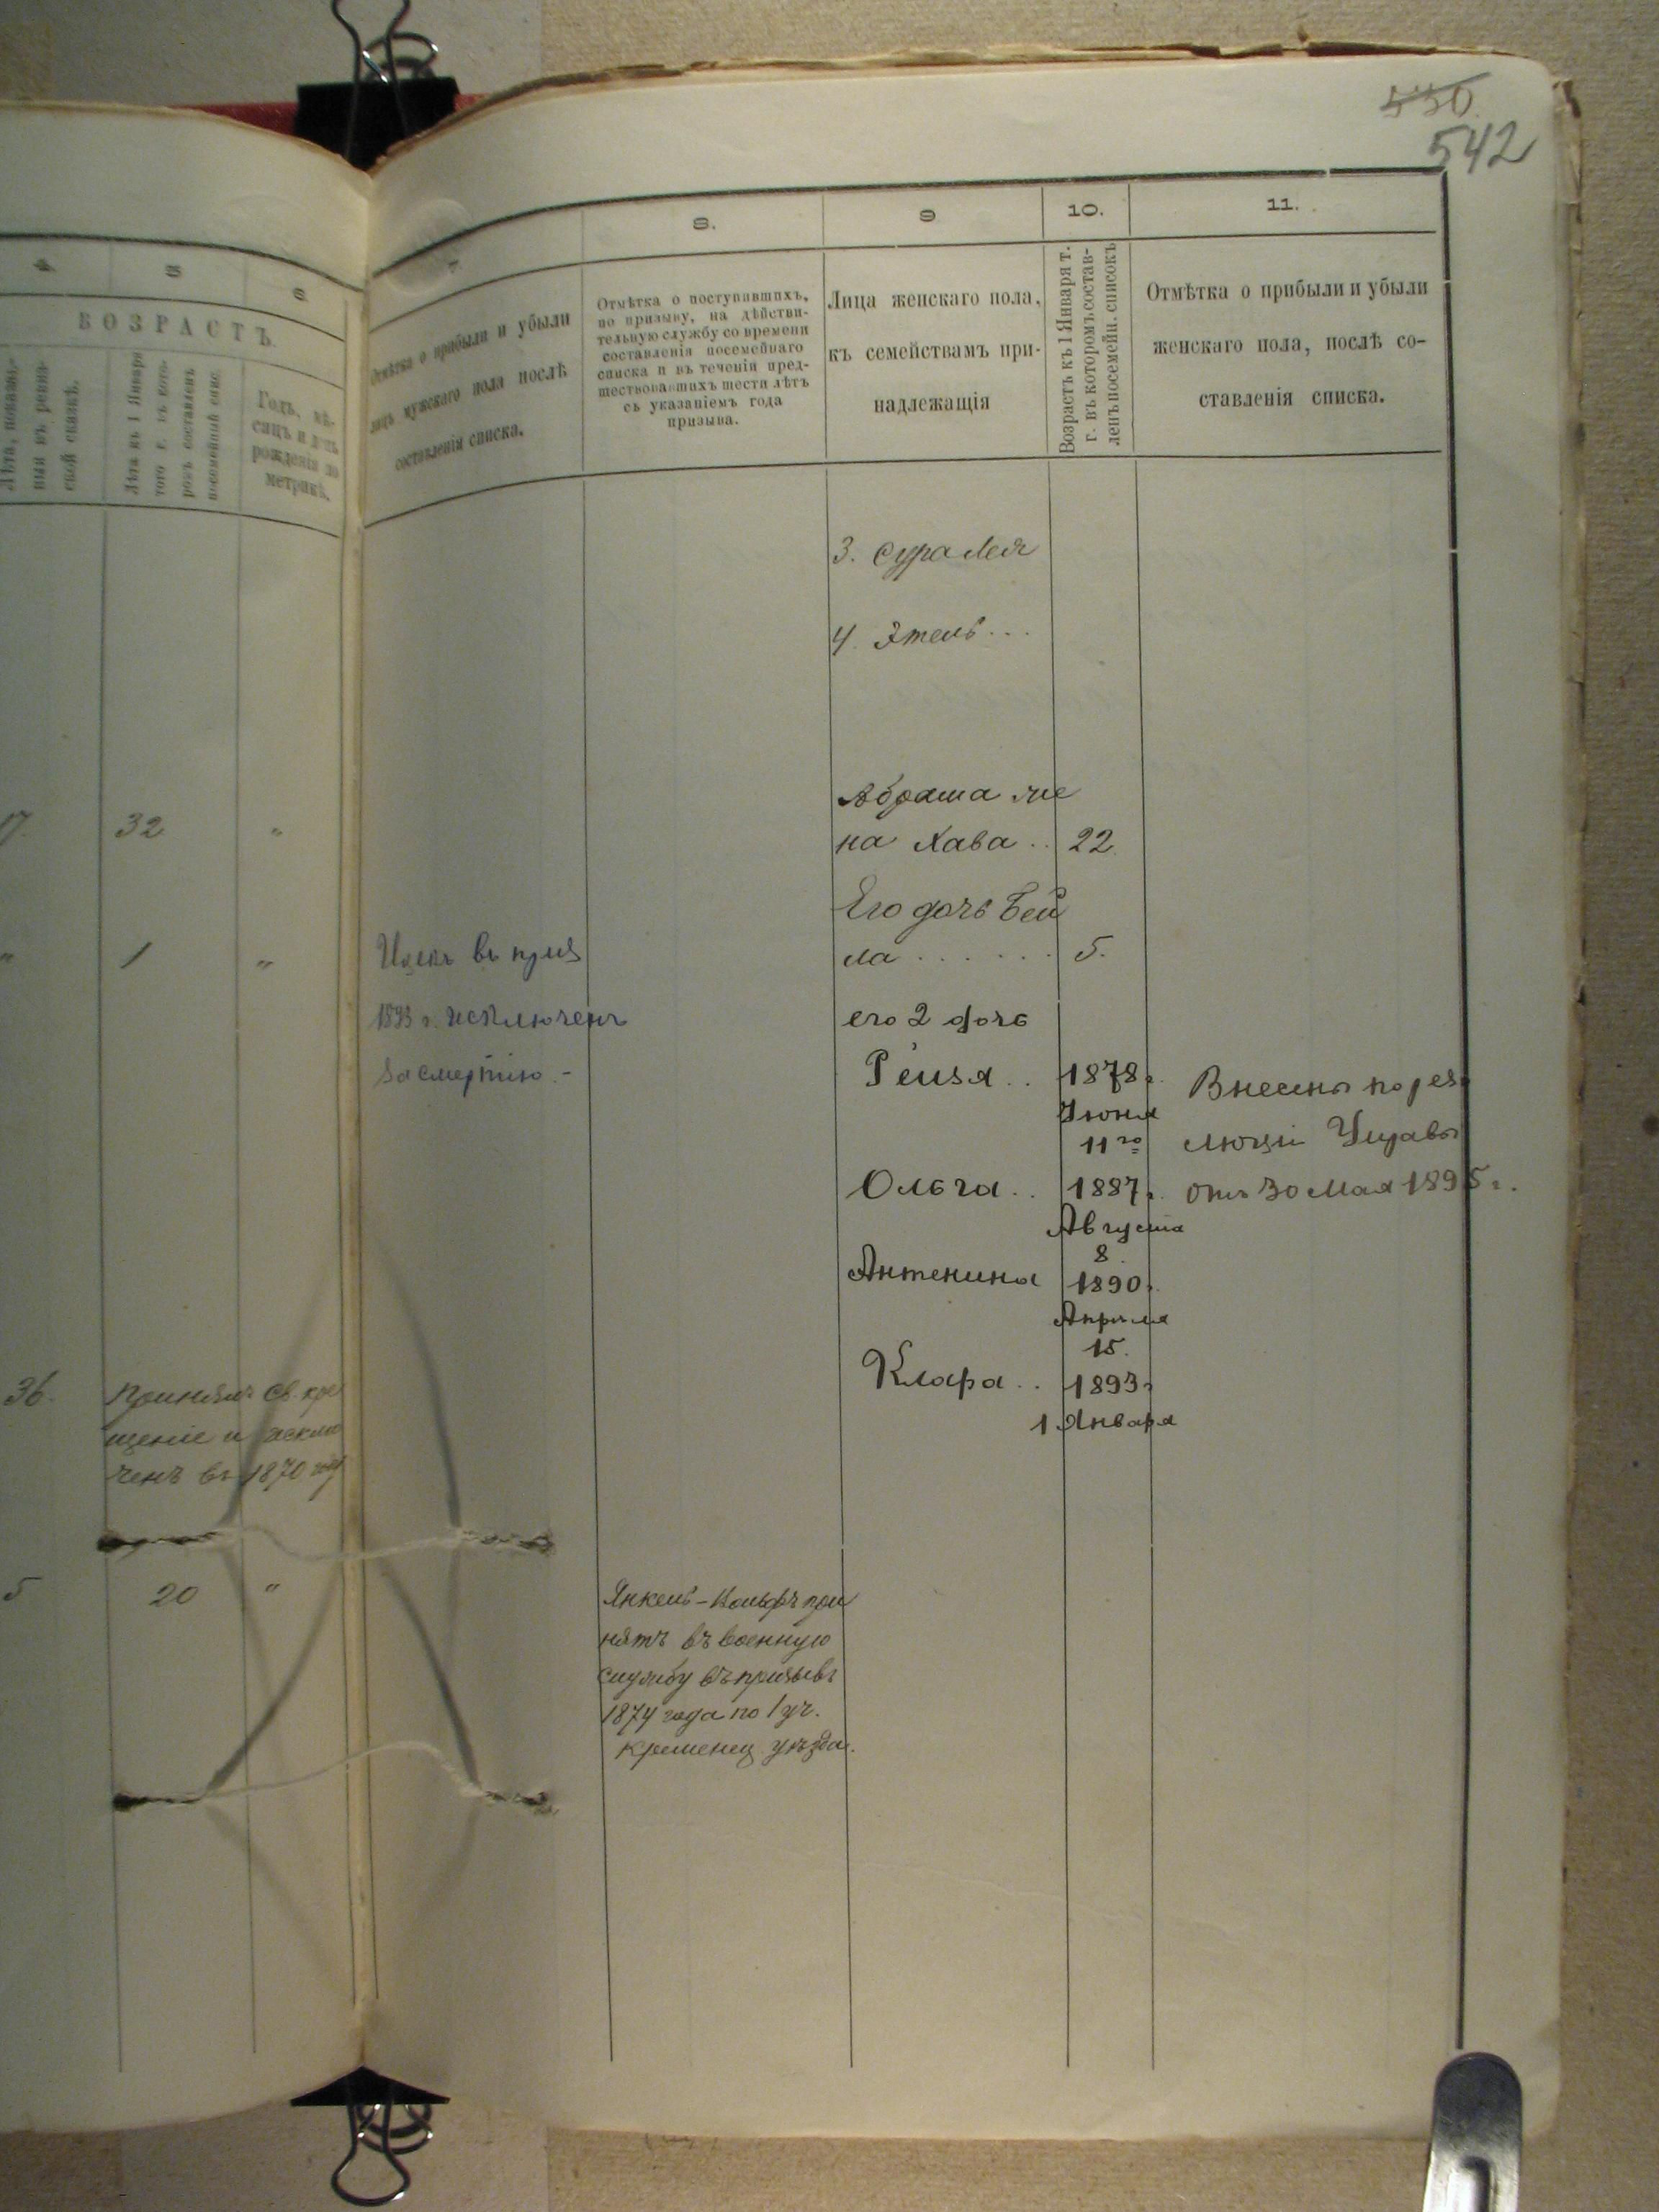 530.
542
4.
5
6.
7.
8.
9
10.
11.
ВОЗРАСТЪ.
Лѣта, показан-
ныя въ ревиз-
ской сказкѣ.
Лѣта къ 1 Января
того г. въ кото-
ромъ составленъ
посемейный спис.
Годъ, мѣ-
сяцъ и день
рожденія по
метрикѣ.
Отмѣтка о прибыли и убыли
лицъ мужскаго пола послѣ
составленія списка.
Отмѣтка о поступившихъ,
по призыву, на дѣйстви-
тельную службу со времени
составленія посемейнаго
списка и въ теченіи пред-
шествовавшихъ шести лѣтъ
съ указаніемъ года
призыва.
Лица женскаго пола,
къ семействамъ при-
надлежащія
Возрастъ къ 1 Января т.
г. въ которомъ состав-
ленъ посемейн. списокъ
Отмѣтка о прибыли и убыли
женскаго пола, послѣ со-
ставленія списка.
3. Сура Лея
4. Этель...
Абрама же
17 32 " на Хава .. 22.
Его дочь Бей
" 1 " ла ...... 5.
1893 г. исключенъ
за смертію. -
его 2 дочь
Рейзя .. 1878 г.
Іюня
11го
Ольга .. 1887 г.
Августа
8.
Антенина 1890 г.
Апрѣля
15.
Клара .. 1893 г
1 Января
Внесены по рез
люціи Управы
отъ 30 Мая 1895 г.
36. Принялъ Св. кре
щеніе и исклю
ченъ въ 1870 году
5 20 "
Янкель-Вольфъ при
нятъ въ военную
службу въ призывъ
1874 года по 1 уч.
Кременец. уѣзда.